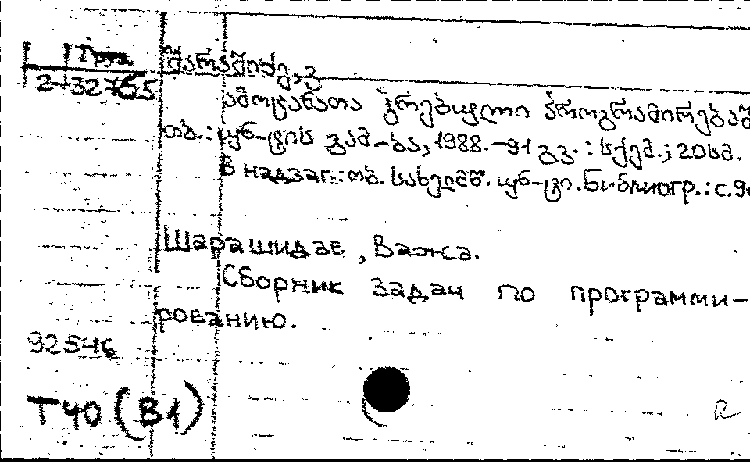 Груз
2-32765
შარაშიძე, ვ
ამოცანათა კრებული პროგრამირებაშ
თბ.: უნ-ტის გამ-ბა, 1988.-91 გვ. : სქემ.; 20სმ.
В надзаг.: თბ. სახელმწ. უნ-ტი. Библиогр.: с. 90
Шарашидзе, Важа.
Сборник задач по программи-
рованию.
92546
Т40 (В1)